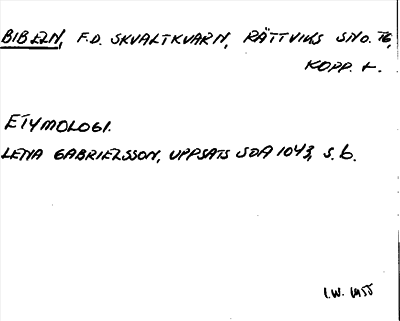 BIBELN, F.D. SKVALTKVARN, RÄTTVIKS SNO. T6,
KOPP. L.
ETYMOLOGI.
LENA GABRIELSSON, UPPSATS SOA 1043, S. 6.
I.W.